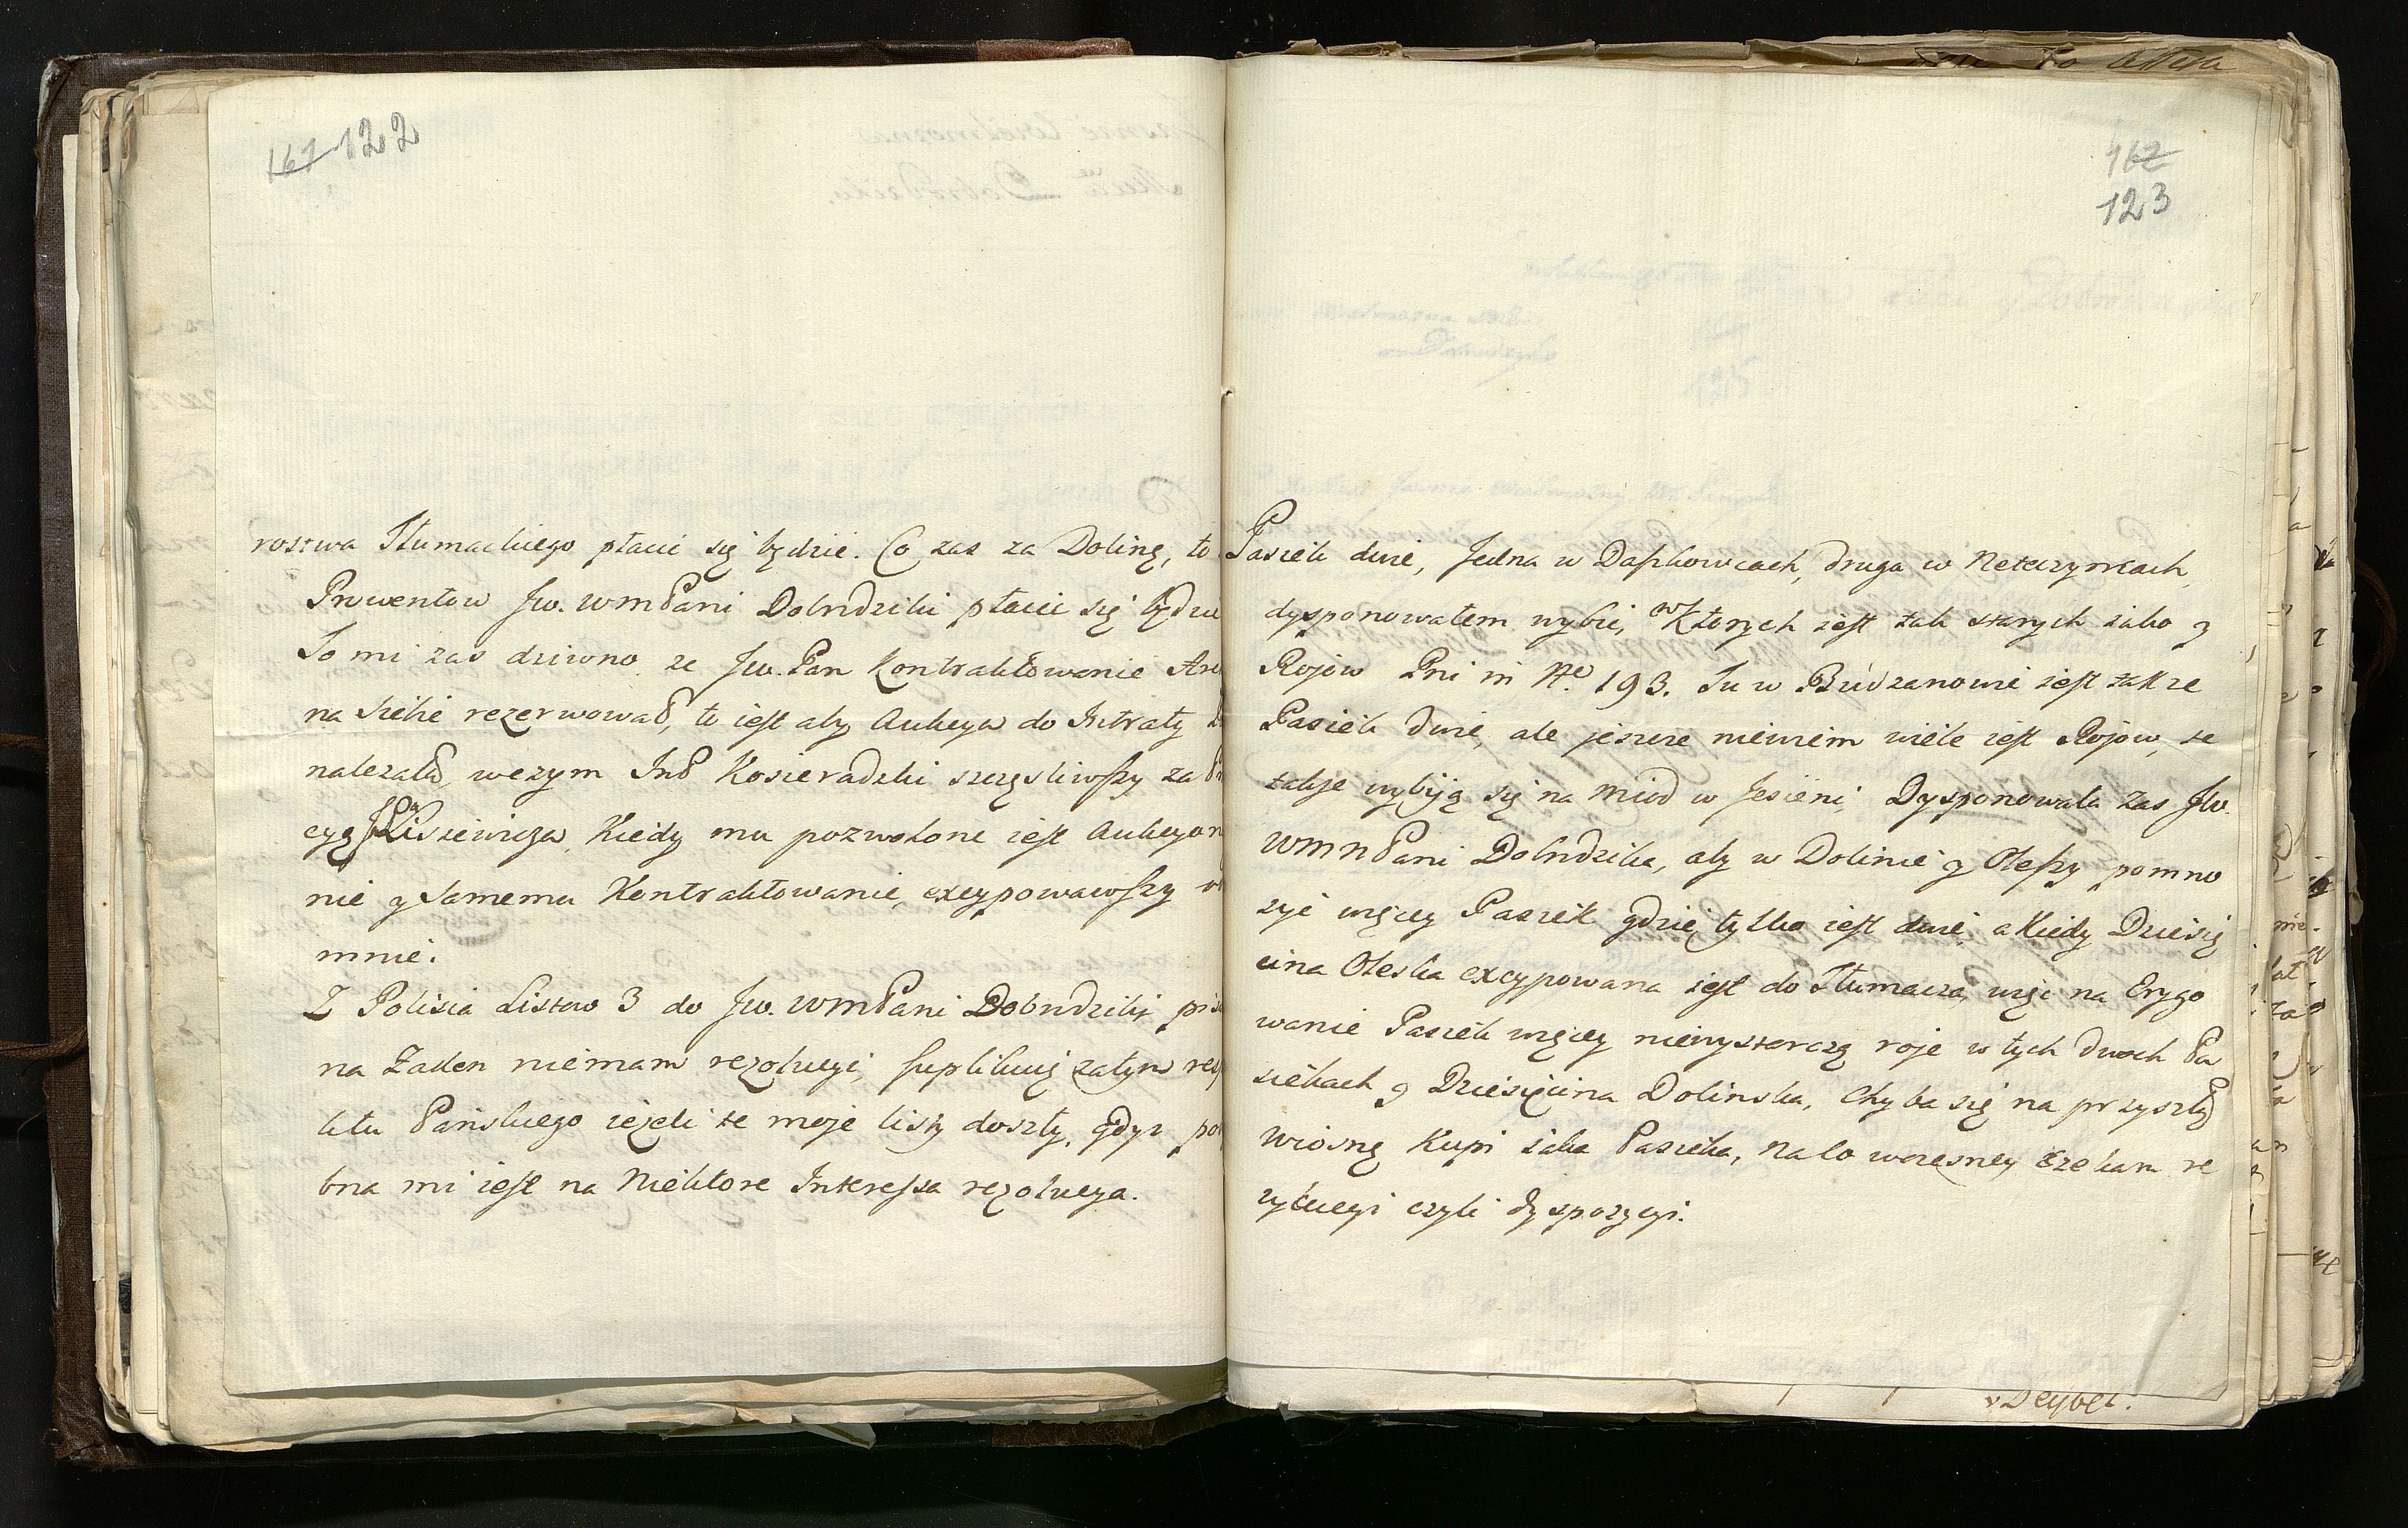 167 122
rostwa Tłumackiego płacić się będzie. Co zas za Dolinę, to
Prowentow Jw. WMPani Dobrodziki płacić się będzie
To mi zas dziwno ze Jw. Pan Kontraktowanie
na siebie rezerwował, to iest aby Aukcya do Intraty
nalezała, w czym Imć Kosieradzki szczęsliwszy za
cyą Lisiewicza, Kiedy mu pozwolone iest Aukcyono
nie y samemu Kontraktowanie, excypowawszy
mnie.
Z Polisia Listow 3 do Jw. WMPani Dobrodziki
na Zaden niemam rezolucyi, supplikuię zatym
ktu Pańskiego iezeli te moje listy doszły, gdyz
bna mi iest na Niektore Interessa rezolucya.
162
123
Pasiek dwie, Jedna w Daszkowcach, druga w Neteczyncach,
dysponowałem wybić, w Ktorych iest tak starych iako y
Rojow Pni in No 193. Tu w Budzanowie iest takze
Pasiek dwie, ale jeszcze niewiem wiele iest Rojow, te
takze wybiją się na miod w Jesieni, Dysponowała zas Jw.
WMNPani Dobrodzika, aby w Dolinie y Oleszy pomno
zyć więcey Pasiek gdzie tylko iest dwie, a Kiedy Dziesię
cina Oleska excypowana iest do Tłumacza, więc na Erygo
wanie Pasiek więcey niewystarczą roje w tych dwoch Pa
siekach y Dziesięcina Dolinska, Chyba się na przyszłą
Wiosnę Kupi iaka Pasieka, na co wczesney czekam re
zolucyi czyli dyspozycyi.
Deybel.